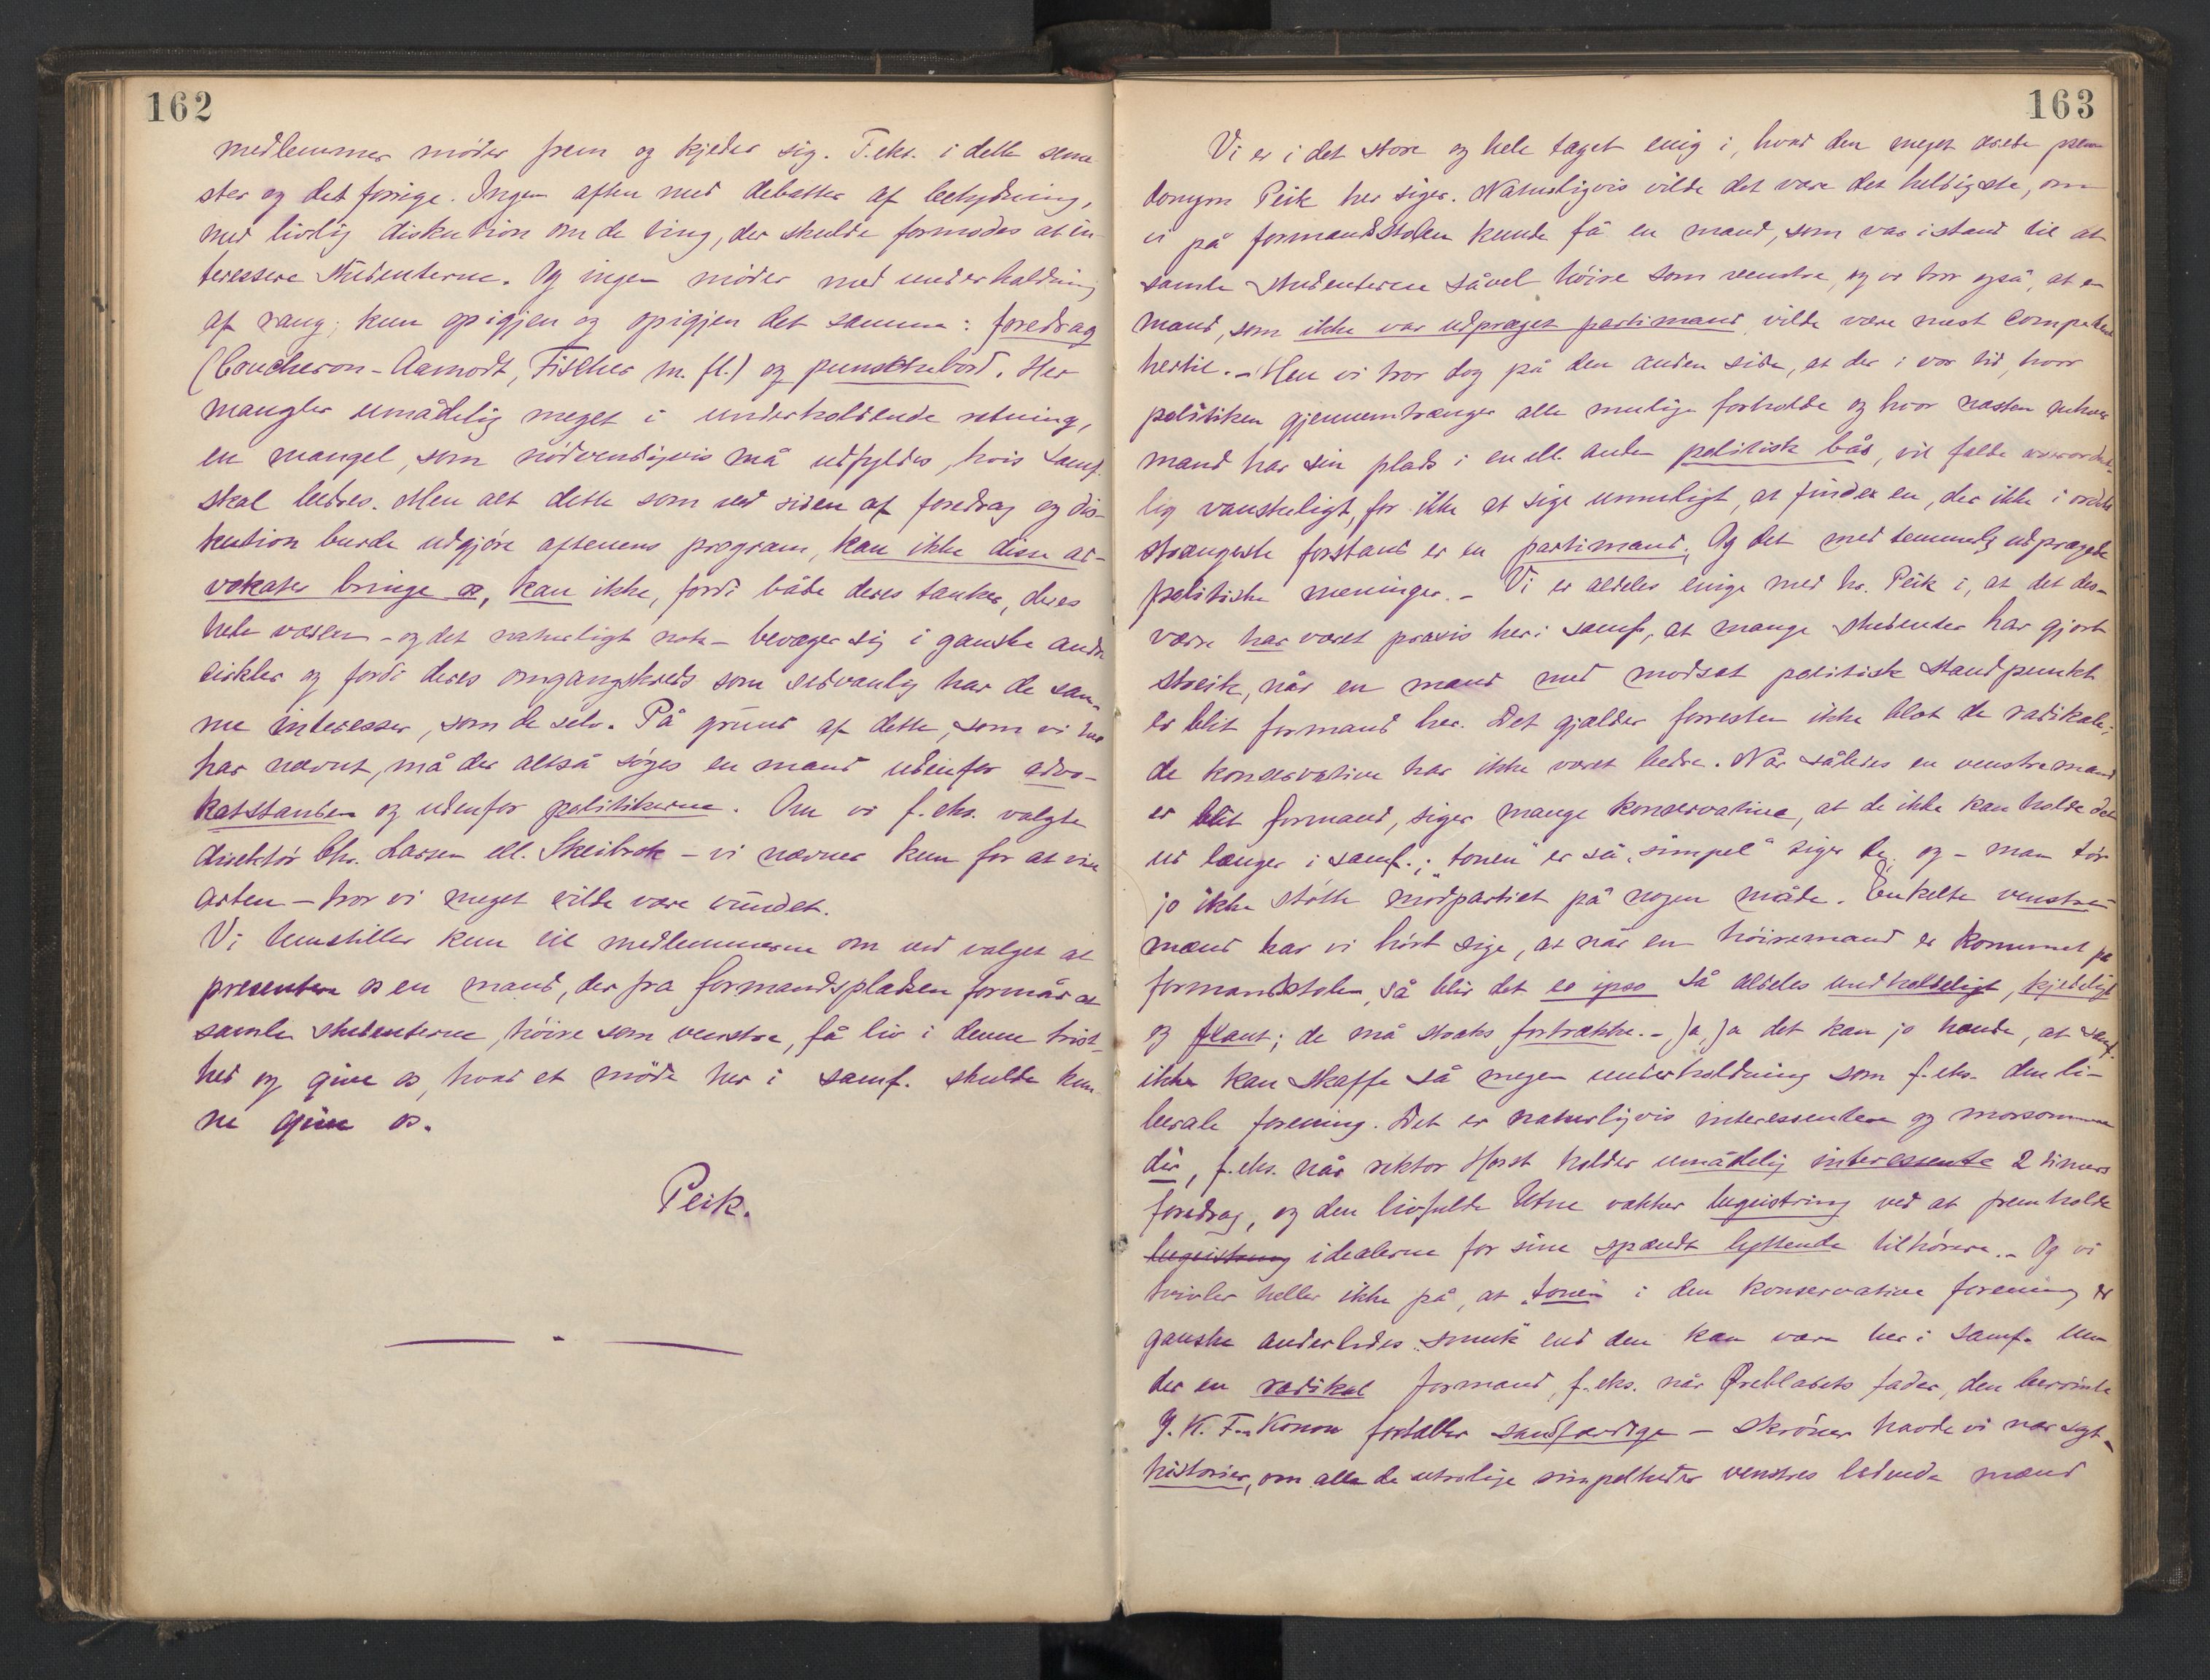 162
medlemmer møder frem og kjeder sig. F.eks. i dette seme
ster og det forrige. Ingen aften med debatter af betydning,
med livlig diskution om de ting, der skulde formodes at in-
teressere studenterne. Og ingen møder med underholdning
af rang; kun opigjen og opigjen det samme: foredrag
(Coucheron-Aamodt, Fischer m. fl.) og punschebord. Her
mangler umådelig meget i underholdende retning,
en mangel, som nødvendigvis må udfyldes, hvis samf.
skal bedres. Men alt dette som ved siden af foredrag og dis-
kution burde udgjøre aftenens program, kan ikke disse ad-
vokater bringe os, kan ikke, fordi både deres tanker, deres
hele væsen - og det naturligt nok - bevæger sig i ganske andre
cirkler og fordi deres omgangskreds som sedvanlig har de sam-
me interesser, som de selv. På grund af dette, som vi her
har nævnt, må der altså søges en mand udenfor advo-
katstanden og udenfor politikerne. Om vi f.eks. valgte
direktør Chr. Larsen ell. Skeibrok - vi nævner kun for at vise
arten - tror vi meget vilde være vundet.
Vi henstiller kun til medlemmerne om ved valget at
presentere os en mand, der fra formandspladsen formår at
samle studenterne, høire som venstre, få liv i denne trist-
hed og give os, hvad et møde her i samf. skulde kun-
ne give os.
Peik.
163
Vi er i det store og hele taget enig i, hvad den meget ærede pseu
donym Peik her siger. Naturligvis vilde det være det heldigste, om
vi på formandsstolen kunde få en mand, som var istand til at
samle studenterne såvel høire som venstre, og vi tror også, at en
mand, som ikke var udpræget partimand vilde være mest competent
hertil. - Men vi tror dog på den anden side, at der i vor tid, hvor
politiken gjennemtrænger alle mulige forholde og hvor næsten enhver
mand har sin plads i en ell. anden politisk bås, vil falde overordent-
lig vanskeligt, for ikke at sige umuligt, at finde en, der ikke i ordets
strængeste forstand er en partimand. Og det med temmelig udprægede
politiske meninger. - Vi er aldeles enige med hr. Peik i, at det des-
værre har været praxis her i samf., at mange studenter har gjort
streik, når en mand med modsat politisk standpunkt
er blit formand her. Det gjælder forresten ikke blot de radikale;
de konservative har ikke været bedre. Når således en venstremand
er blit formand, siger mange konservative, at de ikke kan holde det
ud længer i samf.; "tonen" er så "simpel" siger de, og - man tør
jo ikke støtte modpartiet på nogen måde. Enkelte venstre-
mænd har vi hørt sige, at når en høiremand er kommet på
formandsstolen, så blir det eo ipso så aldeles uudholdeligt, kjedeligt
og flaut; de må straks fortrække. - Ja, ja det kan jo hænde, at samf.
ikke kan skaffe så megen underholdning som f.eks. den li-
berale forening. Det er naturligvis interessentere og morsommere
dér, f.eks. når rektor Horst holder umådelig interessente 2 timers
foredrag, og den livfulde Utne vækker begeistring ved at fremholde
begeistring idealerne for sine spændt lyttende tilhørere. - Og vi
tvivler heller ikke på, at "tonen" i den konservative forening er
ganske anderledes "smuk" end den kan være her i samf. un-
der en radikal formand, f.eks. når Ørebladets fader, den berømte
J. K. F. Konow fortæller sandfærdige - skrøner havde vi nær sagt -
historier, om alle de utrolige simpelheder venstres ledende mænd